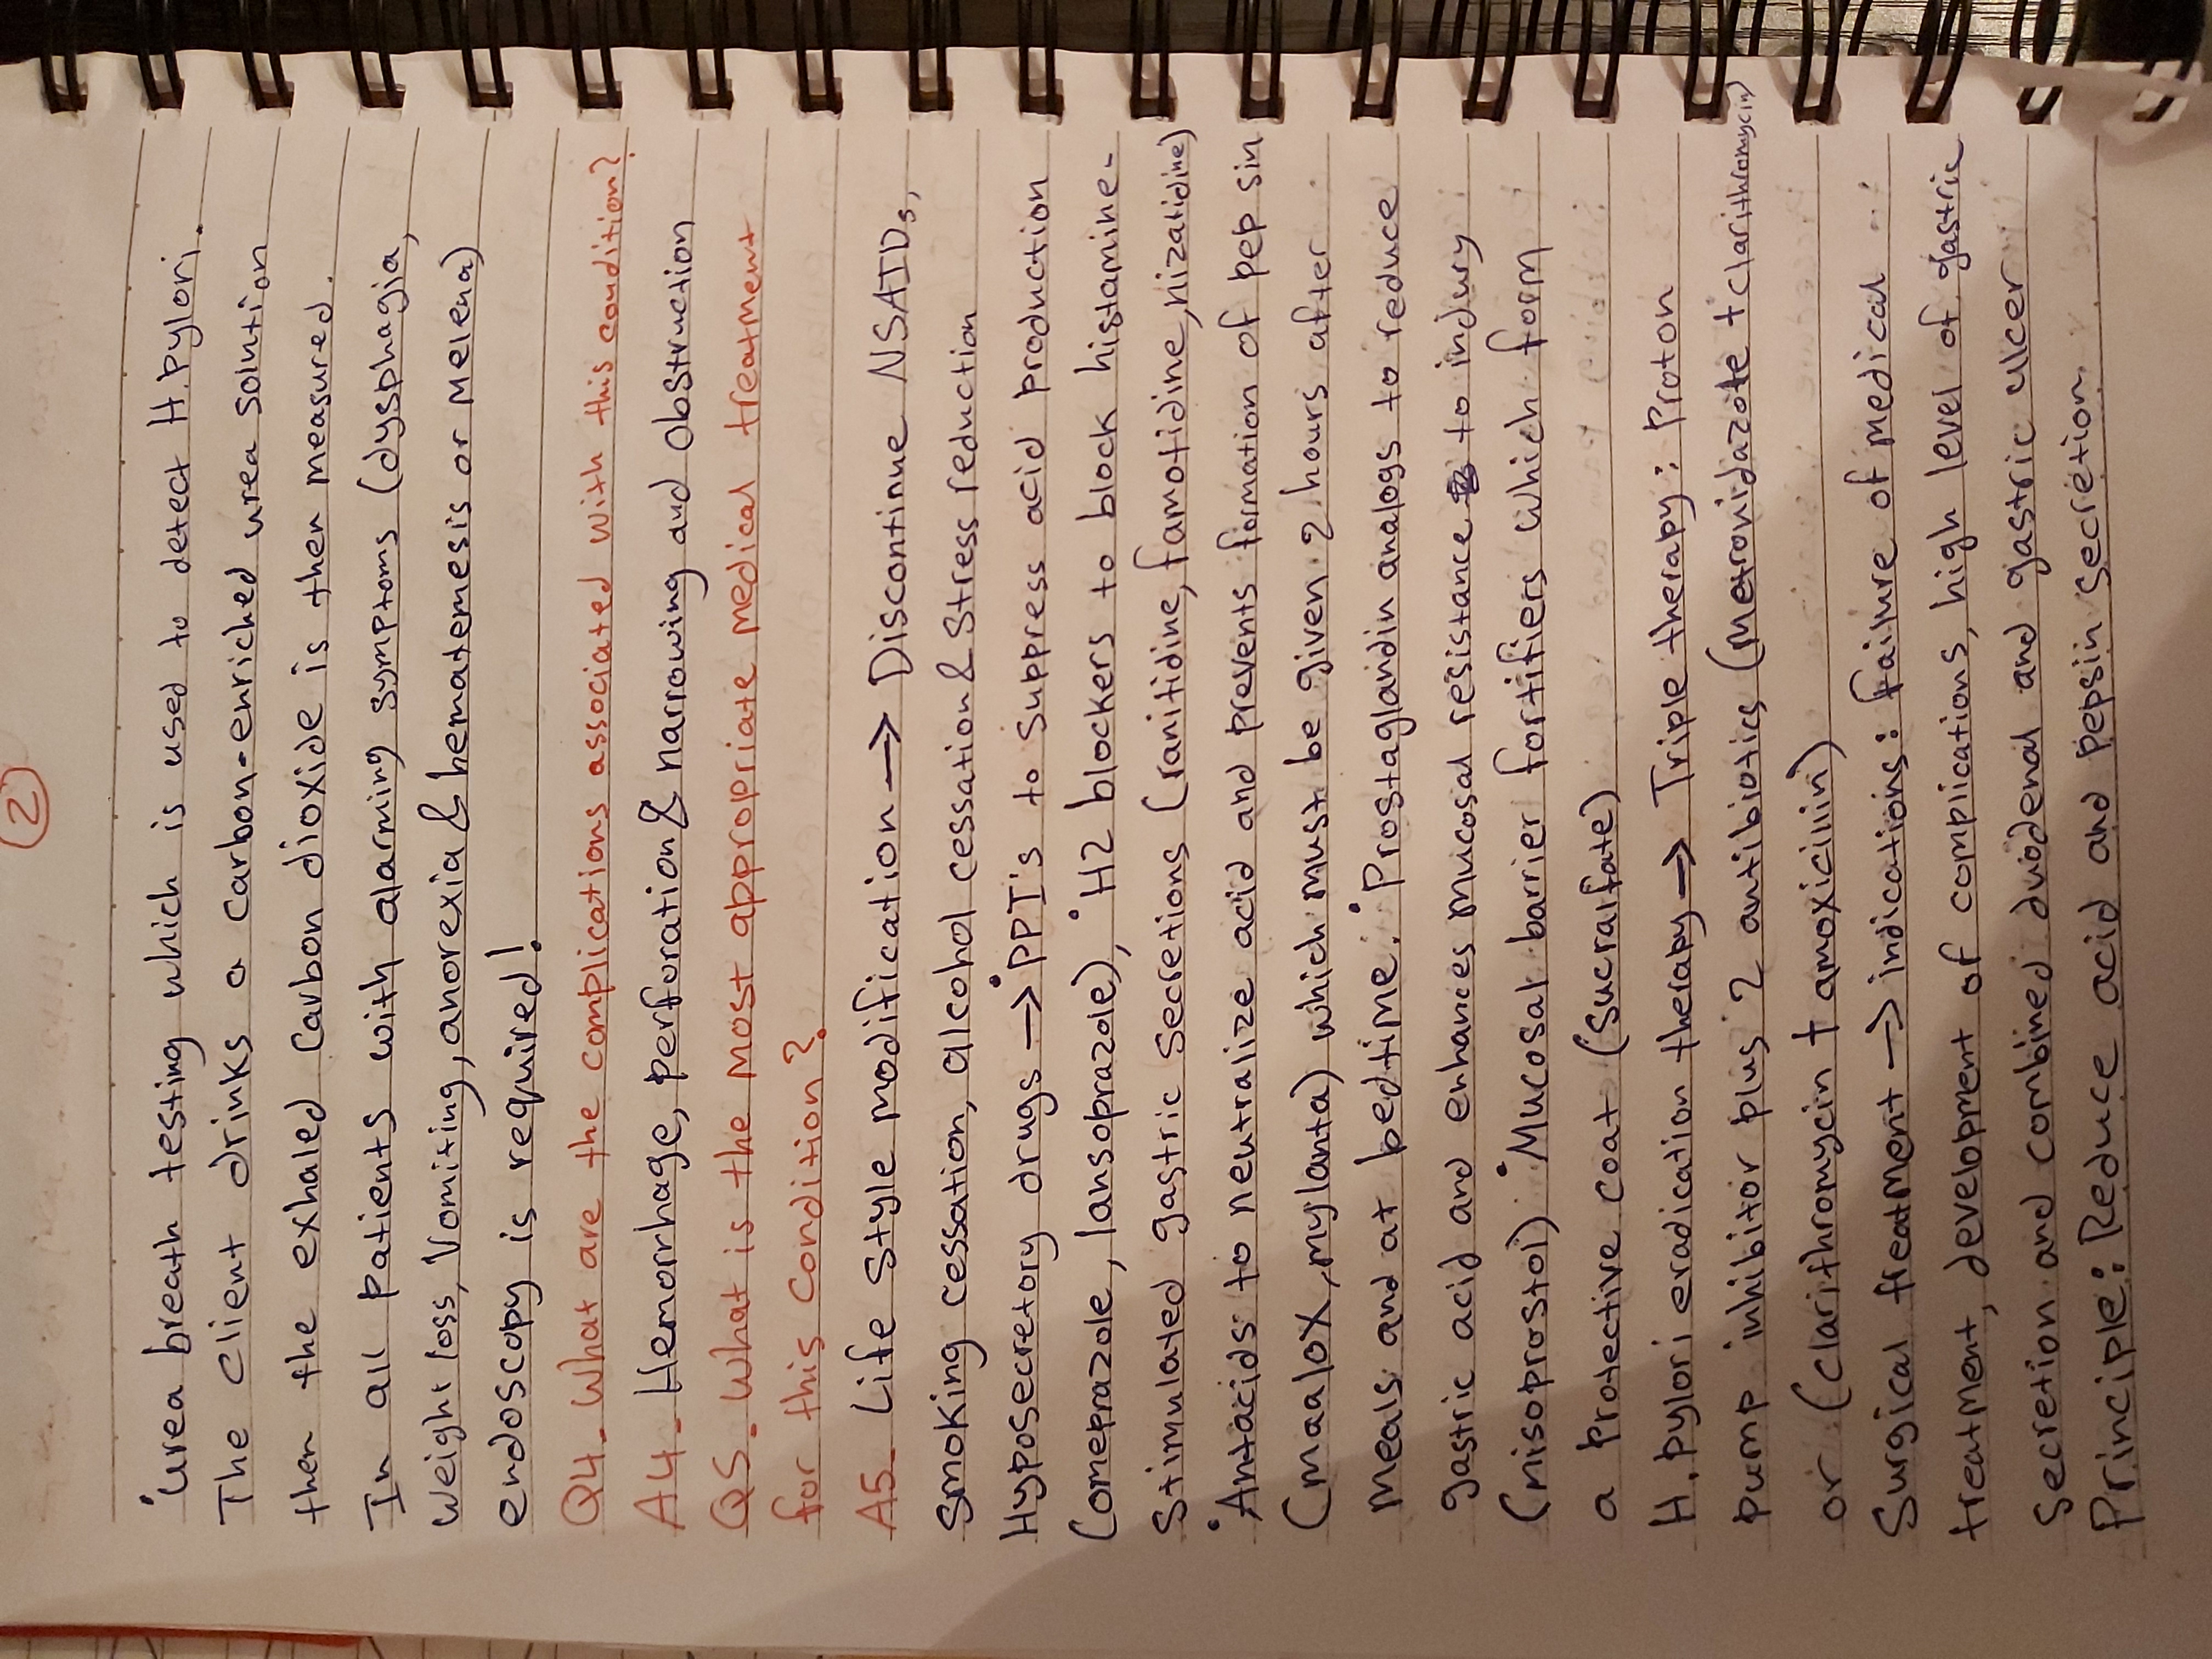 2
•urea breath testing which is used to detect H.Pylori.
The client drinks a carbon-enriched urea solution
then the exhaled carbon dioxide is then measured.
In all patients with alarming symptoms (dysphagia,
weight loss, Vomiting, anorexia & hematemesis or melena)
endoscopy is required!
Q4- What are the complications associated with this condition?
A4- Hemorrhage, perforation & narrowing and obstruction
Q5- What is the most appropriate medical treatment
for this condition?
A5- Life style modification → Discontinue NSAIDs,
smoking cessation, alcohol cessation & stress reduction
Hyposecretory drugs → •PPI's to suppress acid production
(omeprazole, lansoprazole), •H2 blockers to block histamine-
stimulated gastric secretions (ranitidine, famotidine, nizatidine)
•Antacids to neutralize acid and prevents formation of pepsin
(maalox, mylanta) which must be given 2 hours after
meals and at bedtime. •Prostaglandin analogs to reduce
gastric acid and enhances mucosal resistance to injury
(misoprostol) •Mucosal barrier fortifiers which form
a protective coat (sucralfate)
H.pylori eradication therapy → Triple therapy: Proton
pump inhibitor plus 2 antibiotics (metronidazole + clarithromycin)
or (clarithromycin + amoxicillin)
Surgical treatment → indications: failure of medical
treatment, development of complications, high level of gastric
secretion and combined duodenal and gastric ulcer
Principle: Reduce acid and pepsin secretion.